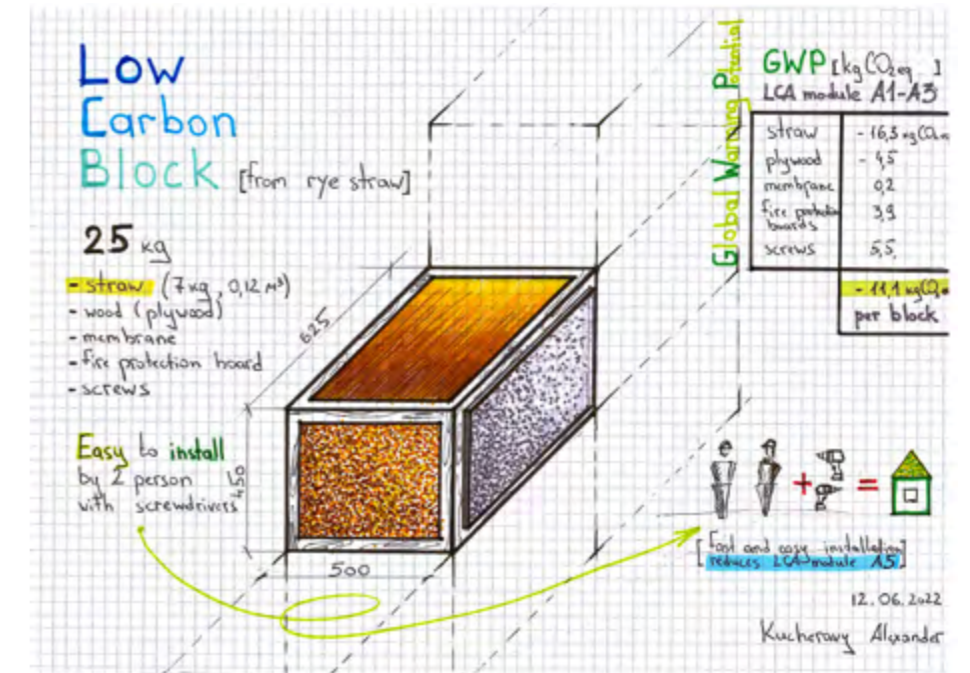 Low
Carbon
Block [from rye straw]
25 kg
- straw (7kg, 0,12 m³)
- wood (plywood)
- membrane
- fire protection board
- screws
Easy to install
by 2 person
with screwdrivers
625
450
500
Global Warming Potential
GWP [kg CO2eq ]
LCA module A1-A3
straw - 16,3 kg CO2
plywood - 4,5
membrane 0,2
fire protection 3,9
boards
screws 5,5
- 11,1 kg CO2
per block
+ =
[Fast and easy installation]
reduces LCA module A5]
12.06.2022
Kucheravy Alexander